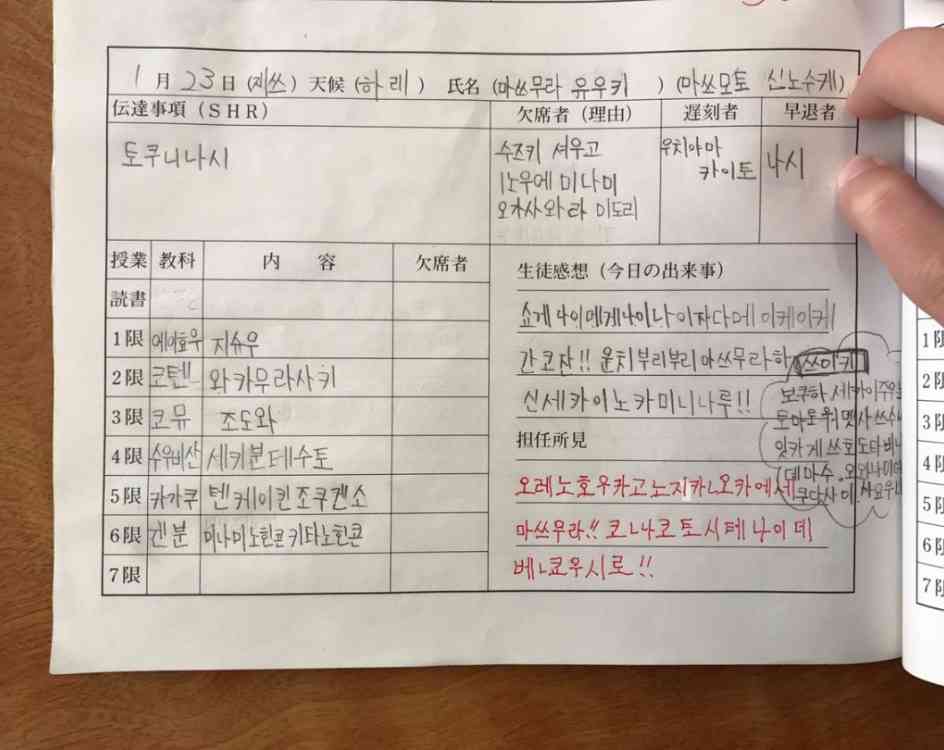 1月23日(게쯔)天候(하레) 氏名(마쓰무라 유우키 )(마쓰모토 신노수케)
伝達事項(SHR) 欠席者(理由) 遅刻者 早退者
토쿠니나시
수즈키 셔우고
이노우에 미나미
오가사와라 미도리
우치야마
카이토
나시
授業 教科 内容 欠席者
読書
1限 에이효우 지슈우
2限 코텐 와카무라사키
3限 코뮤 조도와
4限 수우비산 세키분테수토
5限 카가쿠 텐케이킨조쿠겐소
6限 겐분 미나미노힌콘키타노힌콘
7限
生徒感想(今日の出来事)
쇼게나이데게나이나이자다메이케이케
간코잔!! 운치부리부리마쓰무라하
신세카이노카미니나루!!
쓰이키
보쿠하세카이주우
토마토워멧사쓰수
잇카게쓰호도타베
担任所見
오레노호우카고노지카ㄴ오카에세
마쓰무라!! 코ㄴ나코토시테나이데
베ㄴ쿄우시로!!
1限
2限
3限
4限
5限
6限
7限